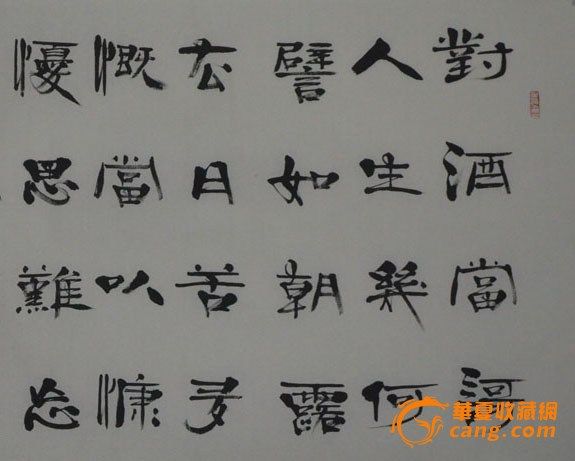 對酒當
人生幾何
譬如朝露
去日苦多
慨當以慷
懮思難忘
華夏收藏網
cang.com